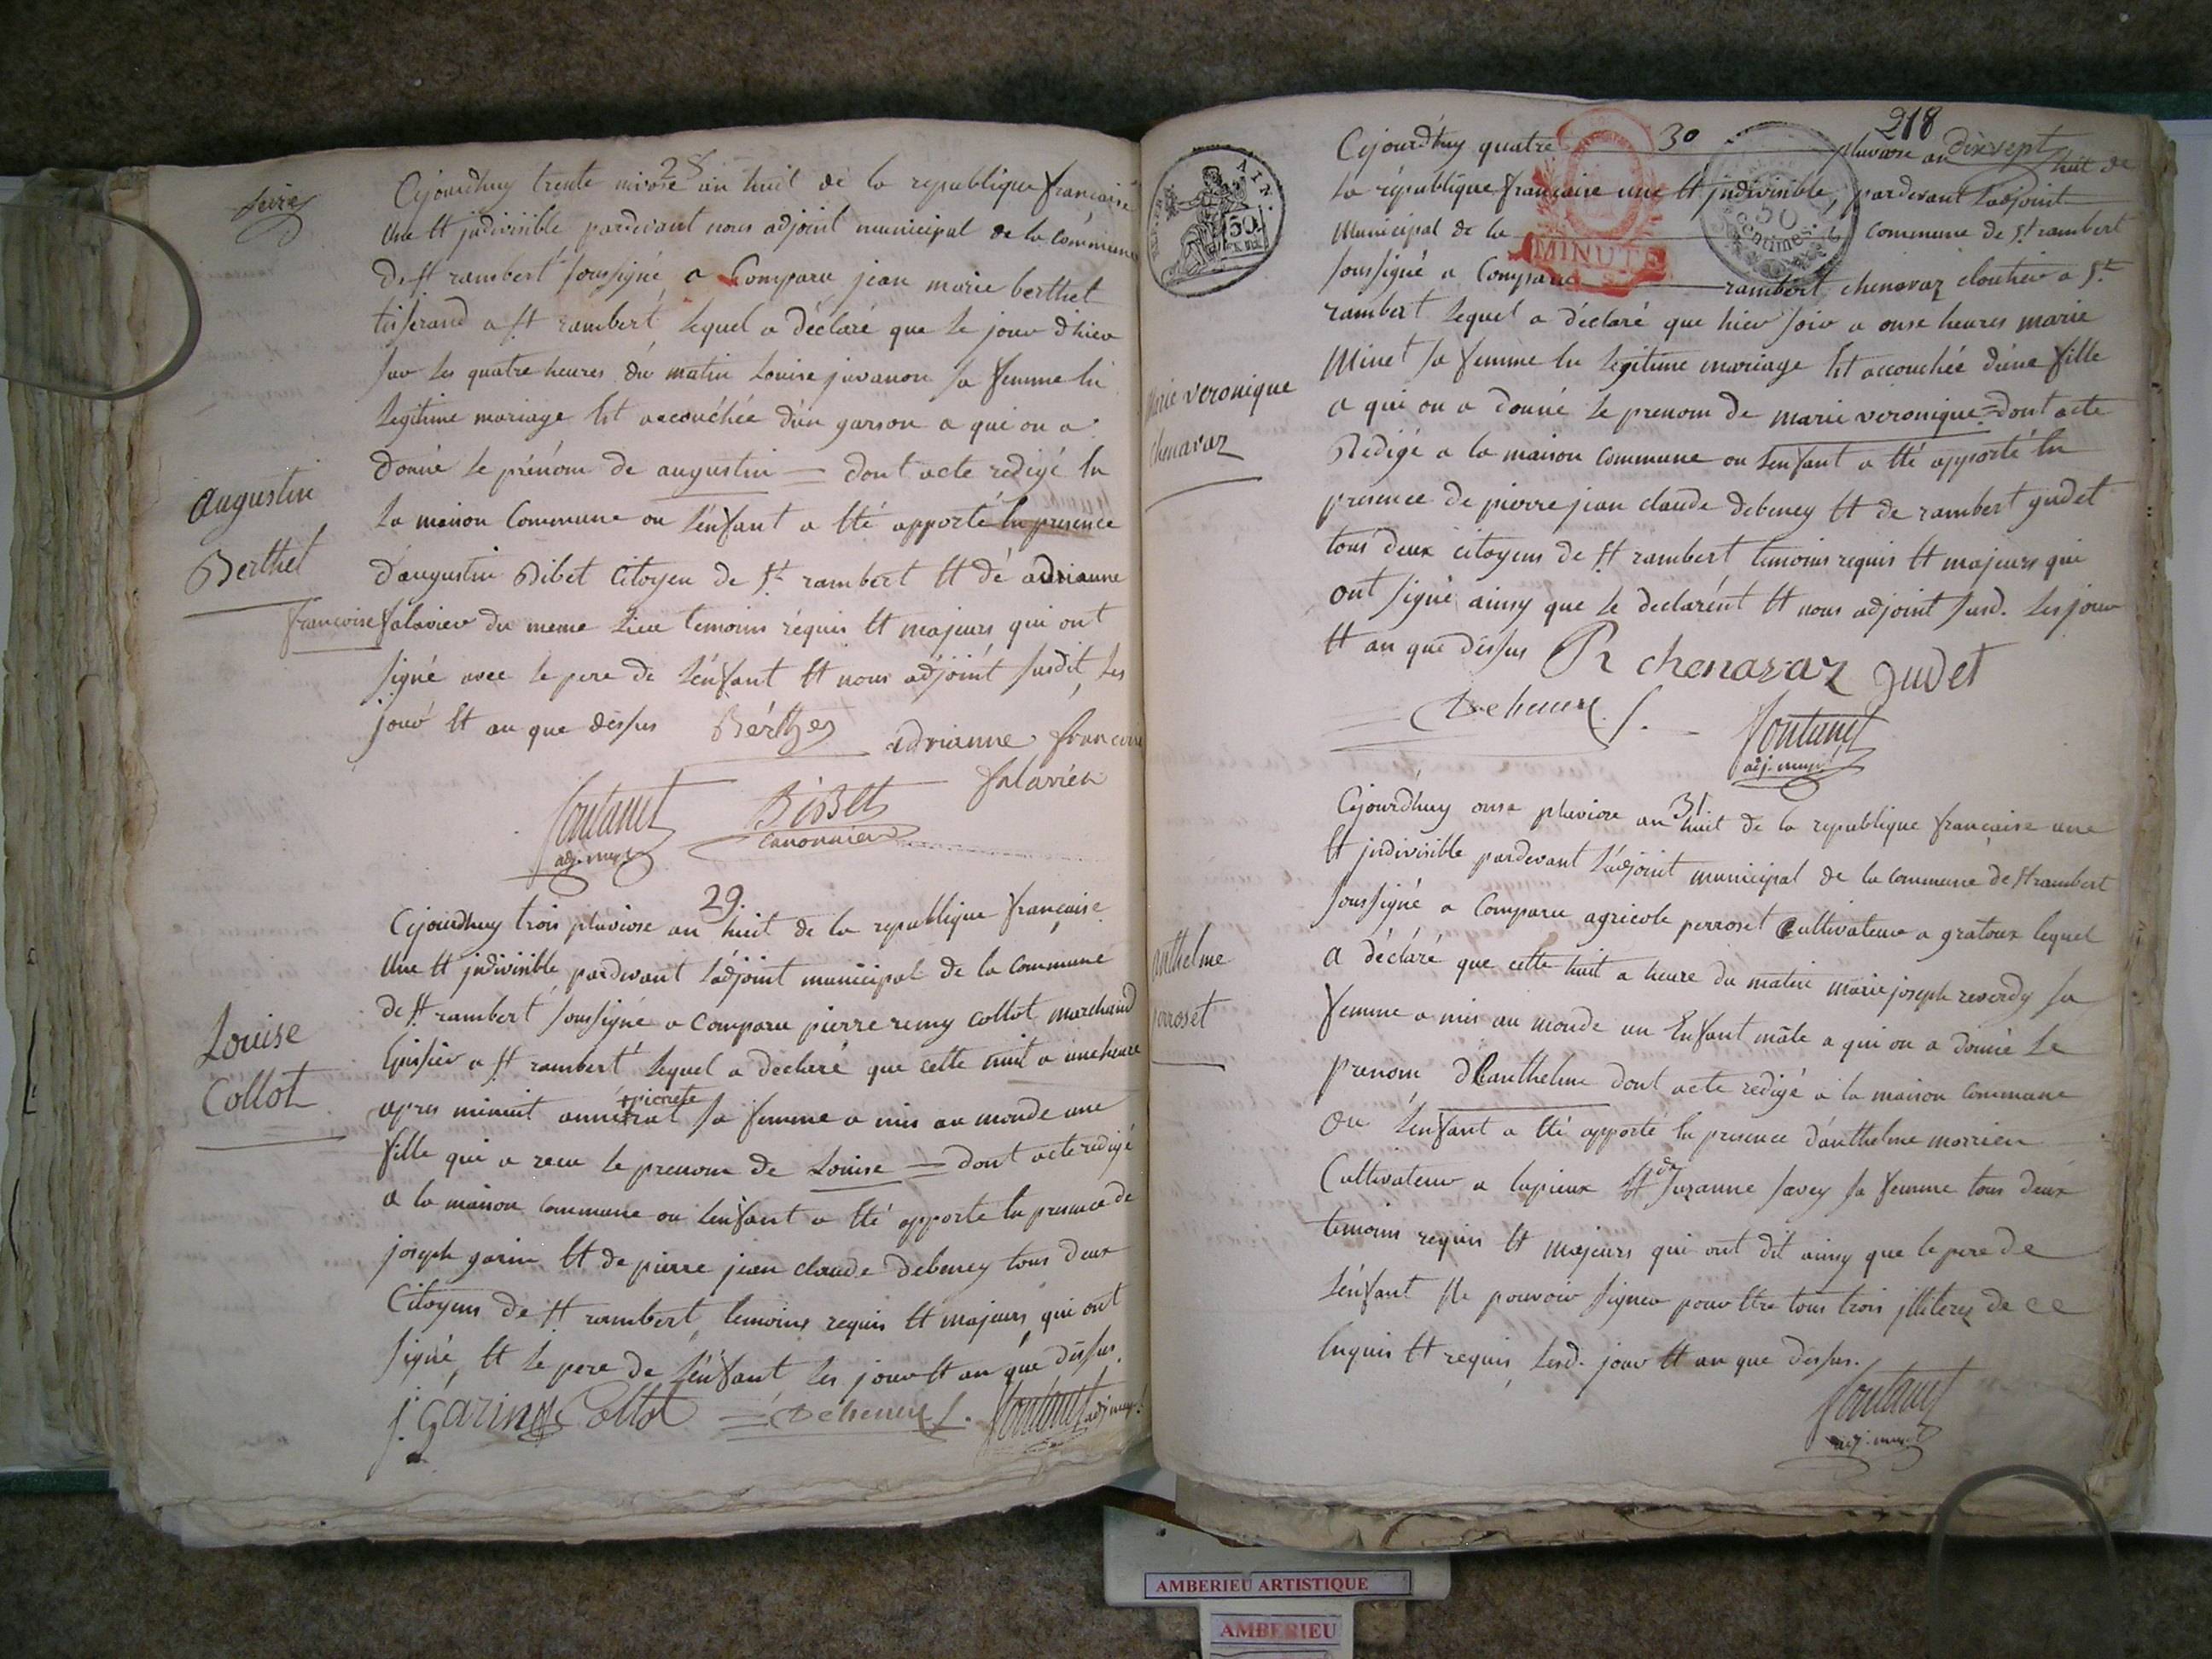 28
Cejourdhuy trente nivose an huit de la republique française
une et jndivisible pardevant nous adjoint municipal de la commune
de st rambert soussigné a Comparu jean marie berthet
tisserand a st rambert lequel a déclaré que le jour d'hier
sur les quatre heures du matin Louise juvanon sa femme En
legitime mariage Est accouchée d'un garson a qui on a
donné le prénom de augustin = dont acte redigé En
la maison Commune ou l'enfant a Eté apporté En presence
d'augustin Bibet Citoyen de St rambert Et de adrianne
francoise falavier du meme Lieu temoins réquis Et majeurs qui ont
signé avec le pere de l'enfant Et nous adjoint susdit, les
jour Et an que dessus Berthet adrianne francoise
falavier
fontanet BiBEt
adj. mupl canonnier
augustin
Berthet
29.
Cejourdhuy trois pluviose an huit de la republique française
une Et jndivisible pardevant l'adjoint municipal de la commune
de St rambert soussigné a Comparu pierre remy collot marchand
Epissier a St rambert lequel a déclaré que cette nuit a une heure
apres minuit sa femme a mis au monde une
fille qui a recu le prenom de Louise = dont acte redigé
a la maison commune ou l'enfant a Eté apporté En presence de
joseph garin Et de pierre jean claude debeney tous deux
Citoyens de St rambert, temoins requis Et majeurs qui ont
signé, Et le pere de l'énfant les jour Et an que dessus.
j. garin Collot fontanet adj mupl
Louise
Collot
218
30
Cejourdhuy quatre pluviose an dixsept huit de
la république francaise une Et jndivisible, pardevant l'adjoint
Municipal de la commune de St rambert
soussigné a Comparu rambert chenavaz cloutier a St
rambert lequel a déclaré que hier soir a onse heures marie
Minet sa femme En legitime mariage Est accouchée d'une fille
a qui on a donné le prenom de marie veronique = dont acte
Redigé a la maison commune ou l'enfant a Eté apporté En
presence de pierre jean claude debeney Et de rambert judet
tous deux citoyens de St rambert temoins requis Et majeurs qui
ont signé ainsy que le declarent Et nous adjoint susd. les jour
Et an que dessus R chenavaz judet
fontanet
adj. mupl
MINUTE
AIN.
50
centimes.
Marie veronique
chenavaz
31
Cejourdhuy onse pluviose an huit de la republique francaise une
Et jndivisible pardevant l'adjoint municipal de la commune de St rambert
soussigné a Comparu agricole perroset Cultivateur a gratoux lequel
a déclaré que cette nuit a heure du matin marie joseph reverdy sa
femme a mis au monde un Enfant mâle a qui on a donné le
prenom d'anthelme dont acte redigé a la maison commune
ou l'enfant a Eté apporté En presence d'anthelme morrier
Cultivateur a lupieux Et de Suzanne savey sa femme tous deux
temoins requis Et majeurs qui ont dit ainsy que le pere de
l'énfant Ne pouvoir signer pour Etre tous trois jlliterez de ce
Enquis Et requis, lesd. jour Et an que dessus.
fontanet
adj. mupl
anthelme
perroset
AMBERIEU ARTISTIQUE
AMBERIEU